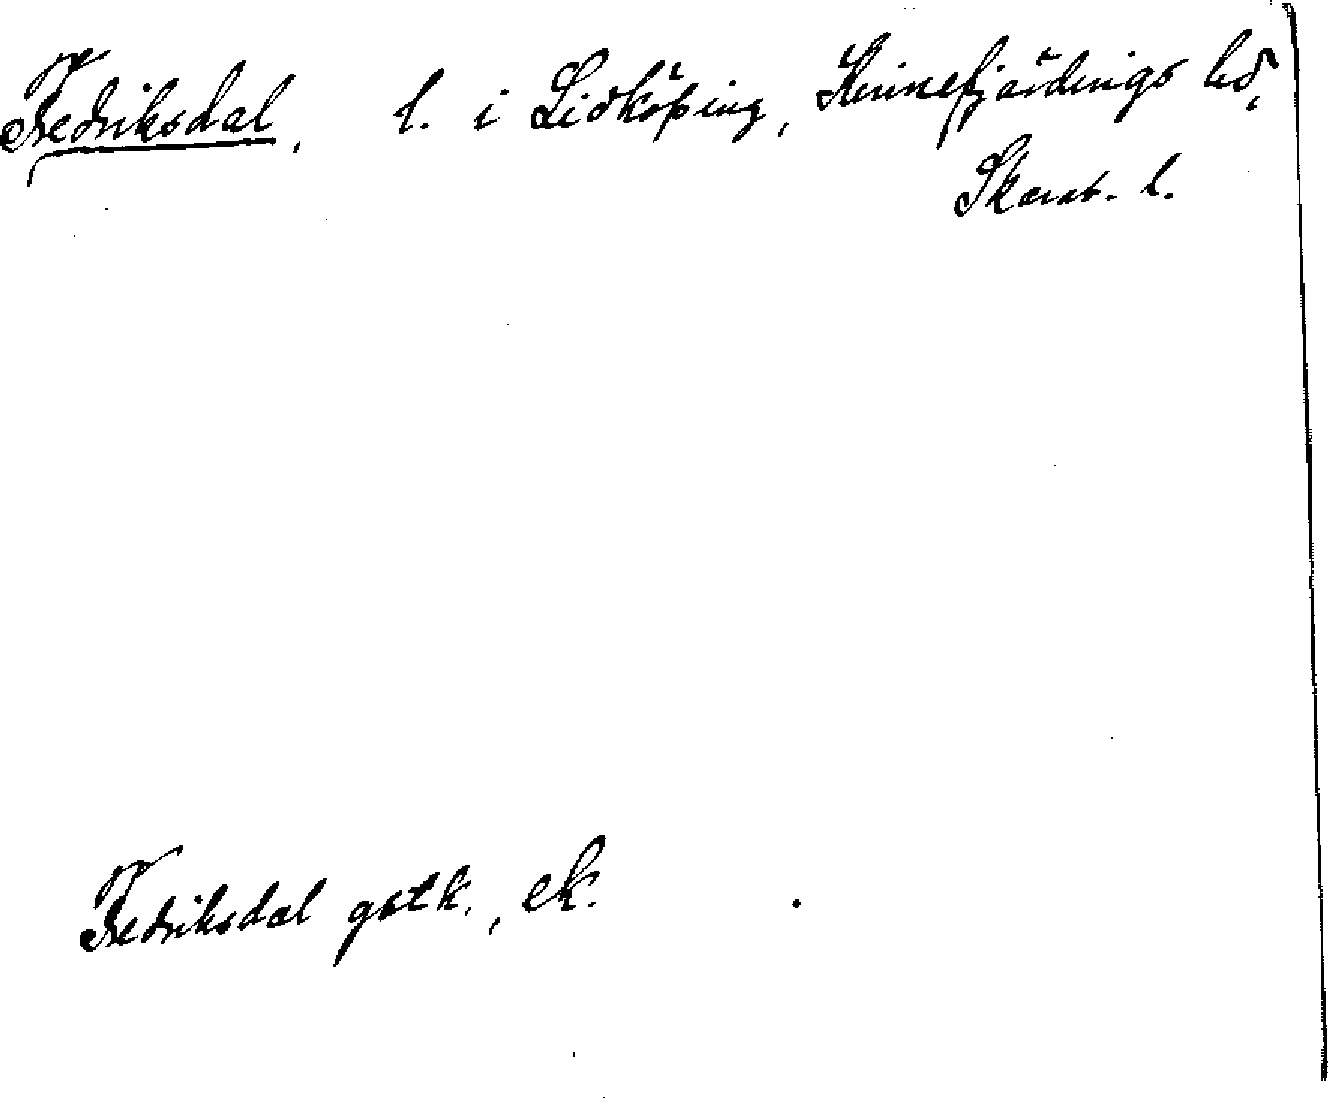 Fredriksdal, l. i Lidköping, Kinnefjärdings hd,
Skarab. l.
Fredriksdal gstk., ek.